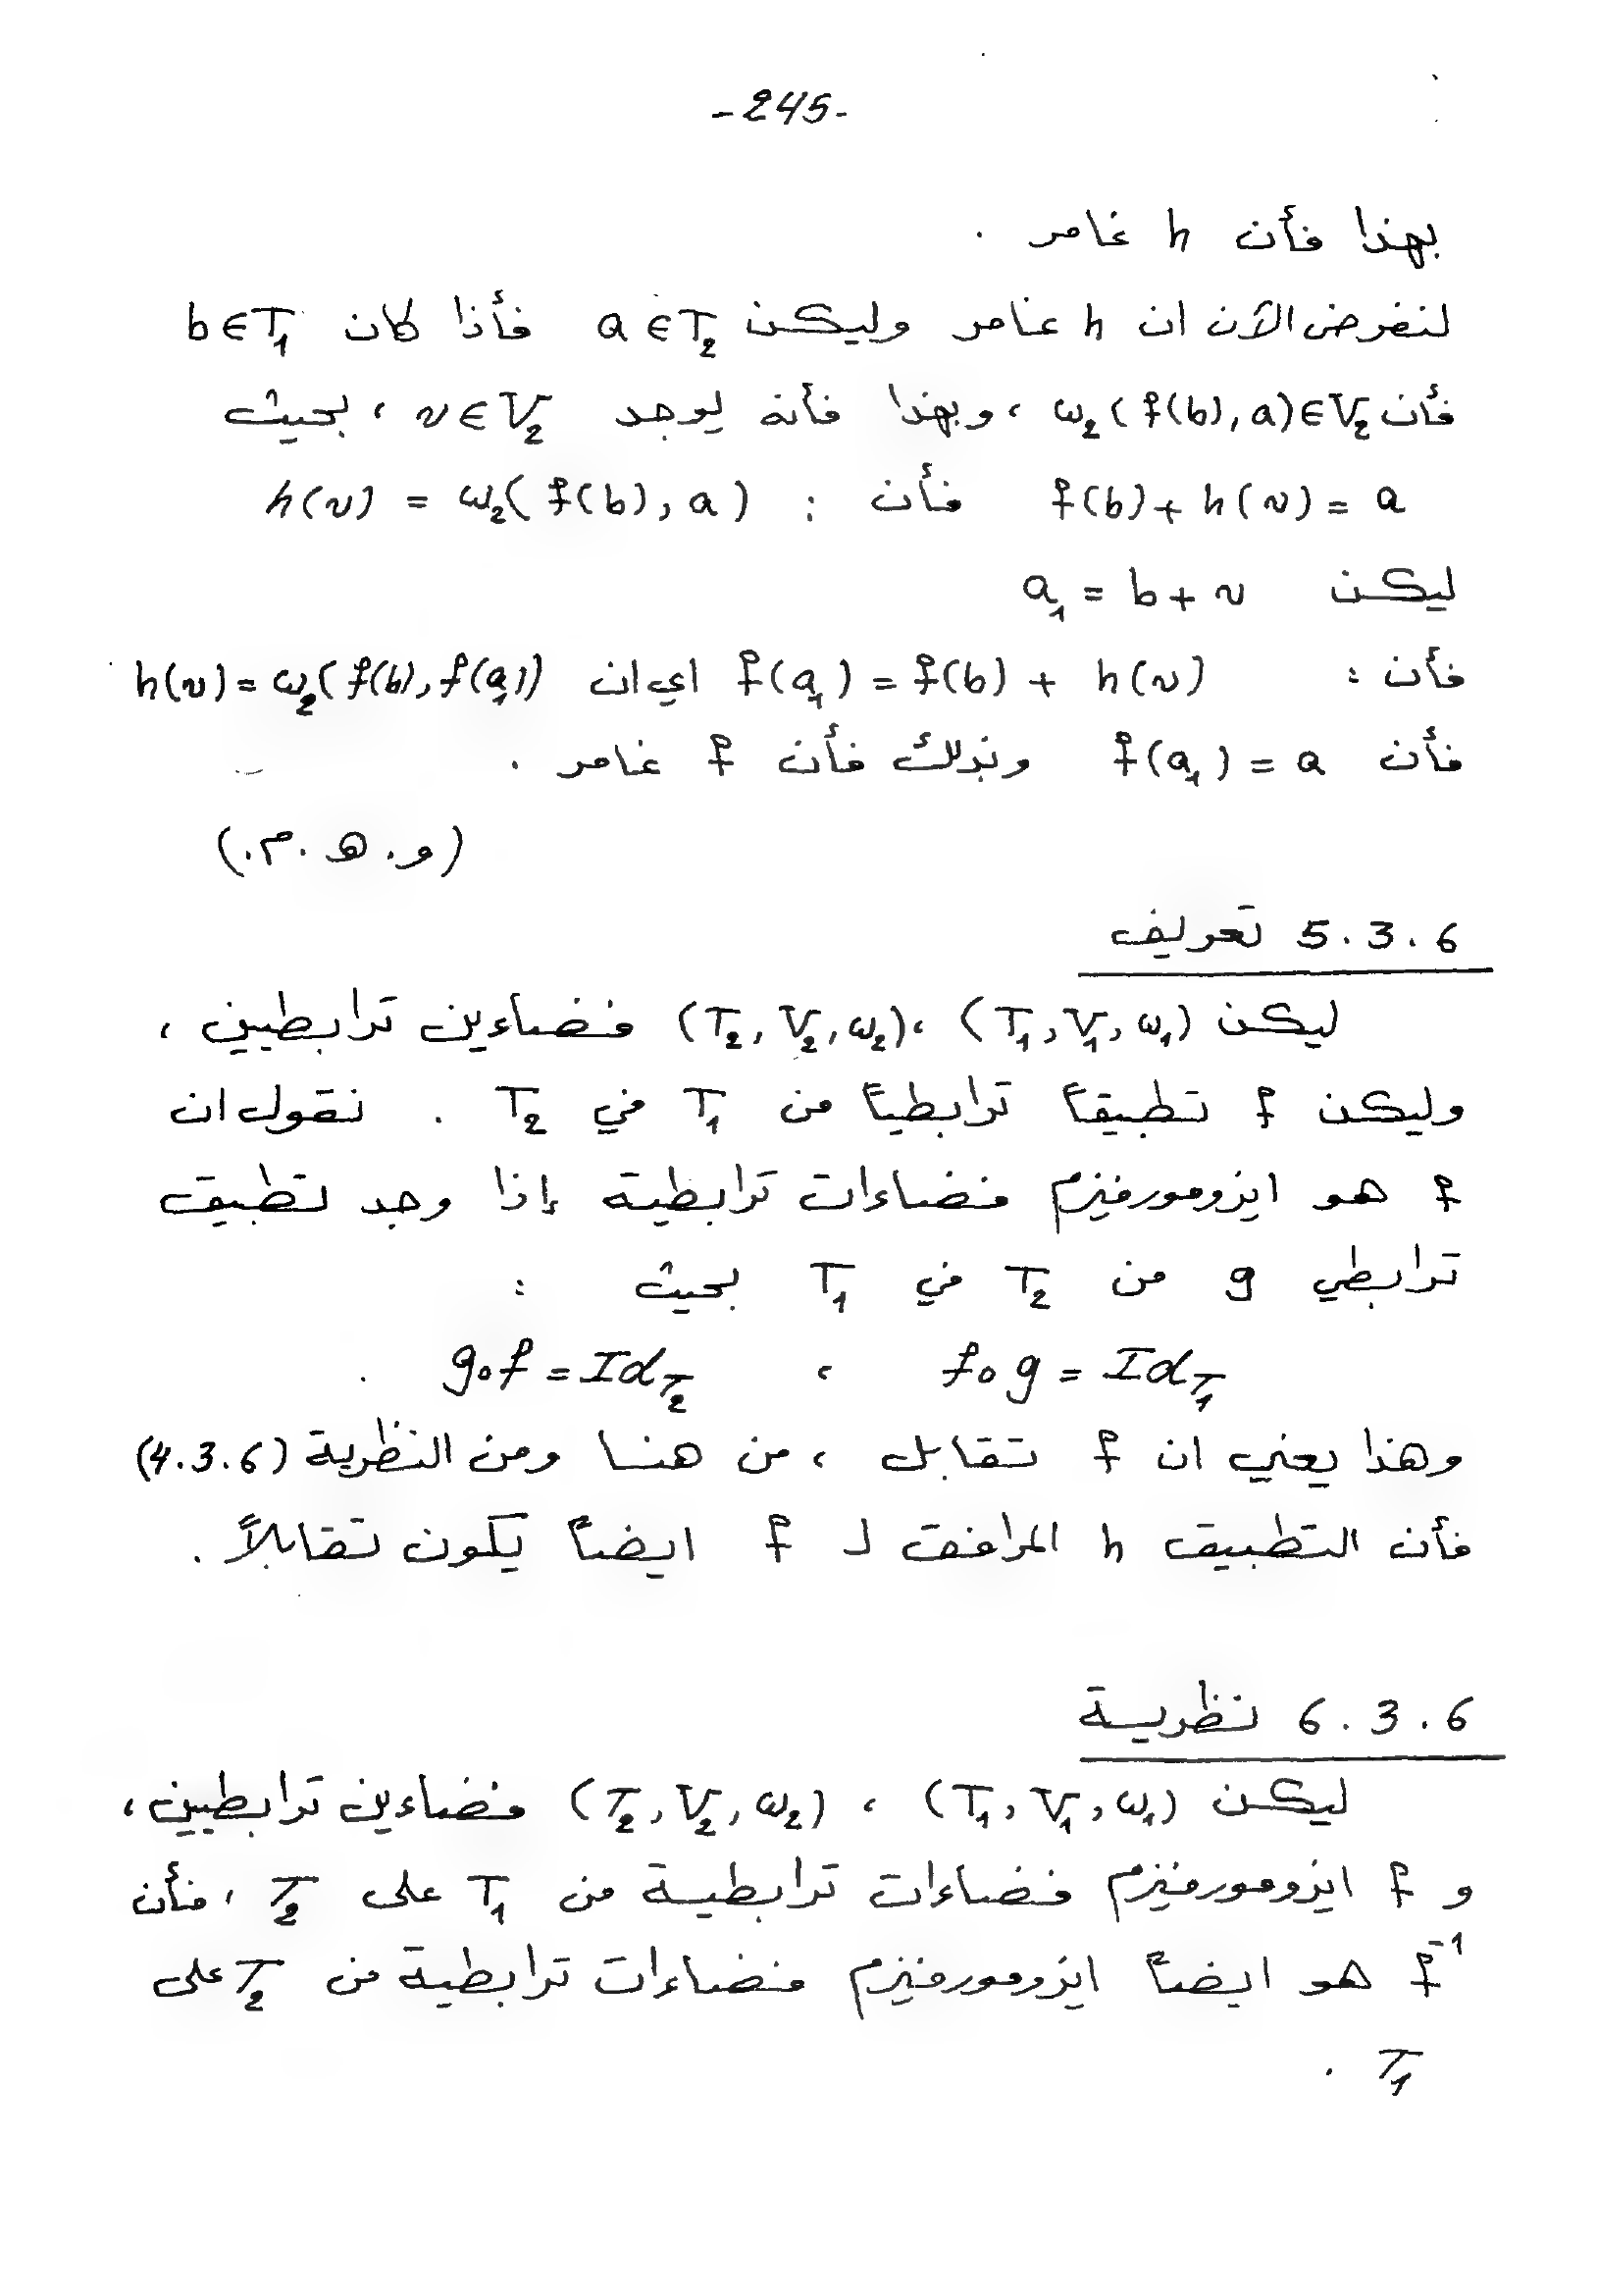 -245-
بهذا فأن h غامر .
لنفرض الآن ان h غامر وليكن a ∈ T₂ فأذا كان b ∈ T₁
فأن ω₂(f(b), a) ∈ V₂ ، وبهذا فأنه يوجد v ∈ V₂ ، بحيث
f(b) + h(v) = a فأن : h(v) = ω₂(f(b), a)
ليكن a₁ = b + v
فأن : f(a₁) = f(b) + h(v) اي ان h(v) = ω₂(f(b), f(a₁))
فأن f(a₁) = a وبذلك فأن f غامر .
(و. ه. م.)
5.3.6 تعريف
ليكن (T₁, V₁, ω₁) ، (T₂, V₂, ω₂) فضاءين ترابطيين ،
وليكن f تطبيقاً ترابطياً من T₁ في T₂ . نقول ان
f هو ايزومورفيزم فضاءات ترابطية إذا وجد تطبيق
ترابطي g من T₂ في T₁ بحيث :
f∘g = Id_T₁ ، g∘f = Id_T₂ .
وهذا يعني ان f تقابل ، من هنا ومن النظرية (4.3.6)
فأن التطبيق h المرافق لـ f ايضاً يكون تقابلاً .
6.3.6 نظرية
ليكن (T₁, V₁, ω₁) ، (T₂, V₂, ω₂) فضاءين ترابطيين ،
و f ايزومورفيزم فضاءات ترابطية من T₁ على T₂ ، فأن
f⁻¹ هو ايضاً ايزومورفيزم فضاءات ترابطية من T₂ على
T₁ .